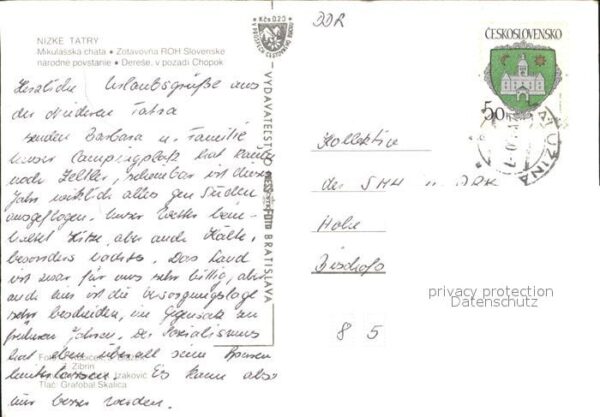 NÍZKE TATRY
Mikulášska chata • Zotavovňa ROH Slovenské
národné povstanie • Dereše, v pozadí Chopok
Herzliche Urlaubsgrüße aus
der Niederen Tatra
senden Barbara u. Familie
Unser Campingplatz hat kaum
noch Zeltler, scheinbar ist dieses
Jahr wirklich alles gen Süden
ausgeflogen. Unser Wetter bein-
haltet Hitze, aber auch Kälte,
besonders nachts. Das Land
ist zwar für uns sehr billig, aber
auch hier ist die Versorgungslage
sehr bescheiden, im Gegensatz zu
früheren Jahren. Der Sozialismus
hat eben überall seine Spuren
hinterlassen. Es kann also
nur besser werden.
Zibrín
Tlač: Grafobal Skalica
Kčs 0,20
VYDAVATEĽSTVO
BRATISLAVA
DDR
ČESKOSLOVENSKO
50 h
MUŽINA
Kollektiv
der SMH
Hohe
Bischofs
8 5
privacy protection
Datenschutz